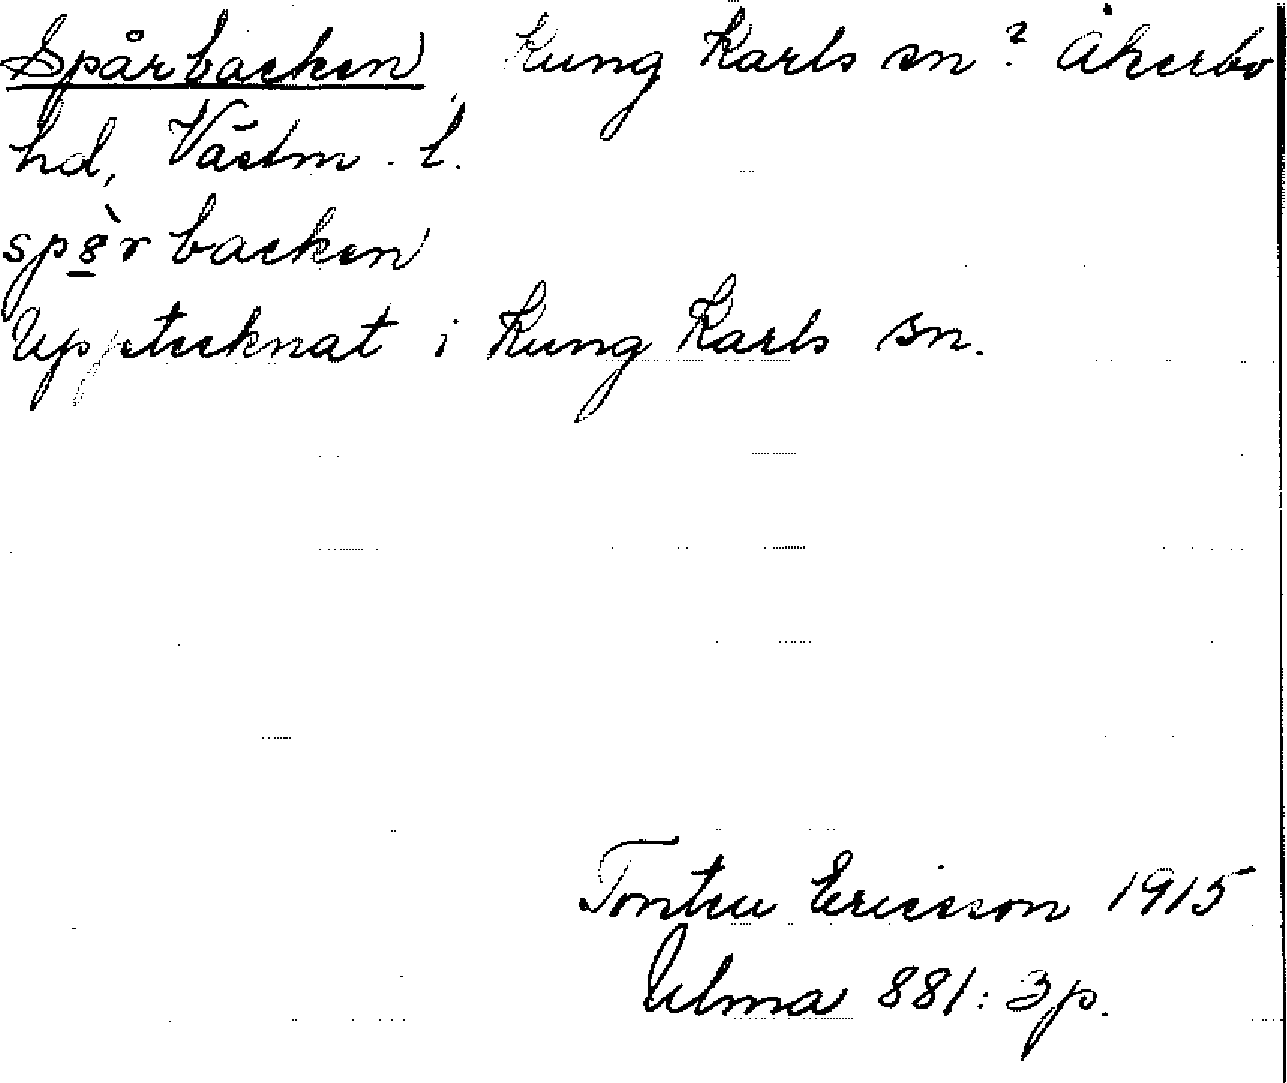 Spårbacken, Kung Karls sn? Åkerbo
hd, Västm. l.
sp8̲̀r backen
Upptecknat i Kung Karls sn.
Ericsson 1915
Ulma 881:3 p.